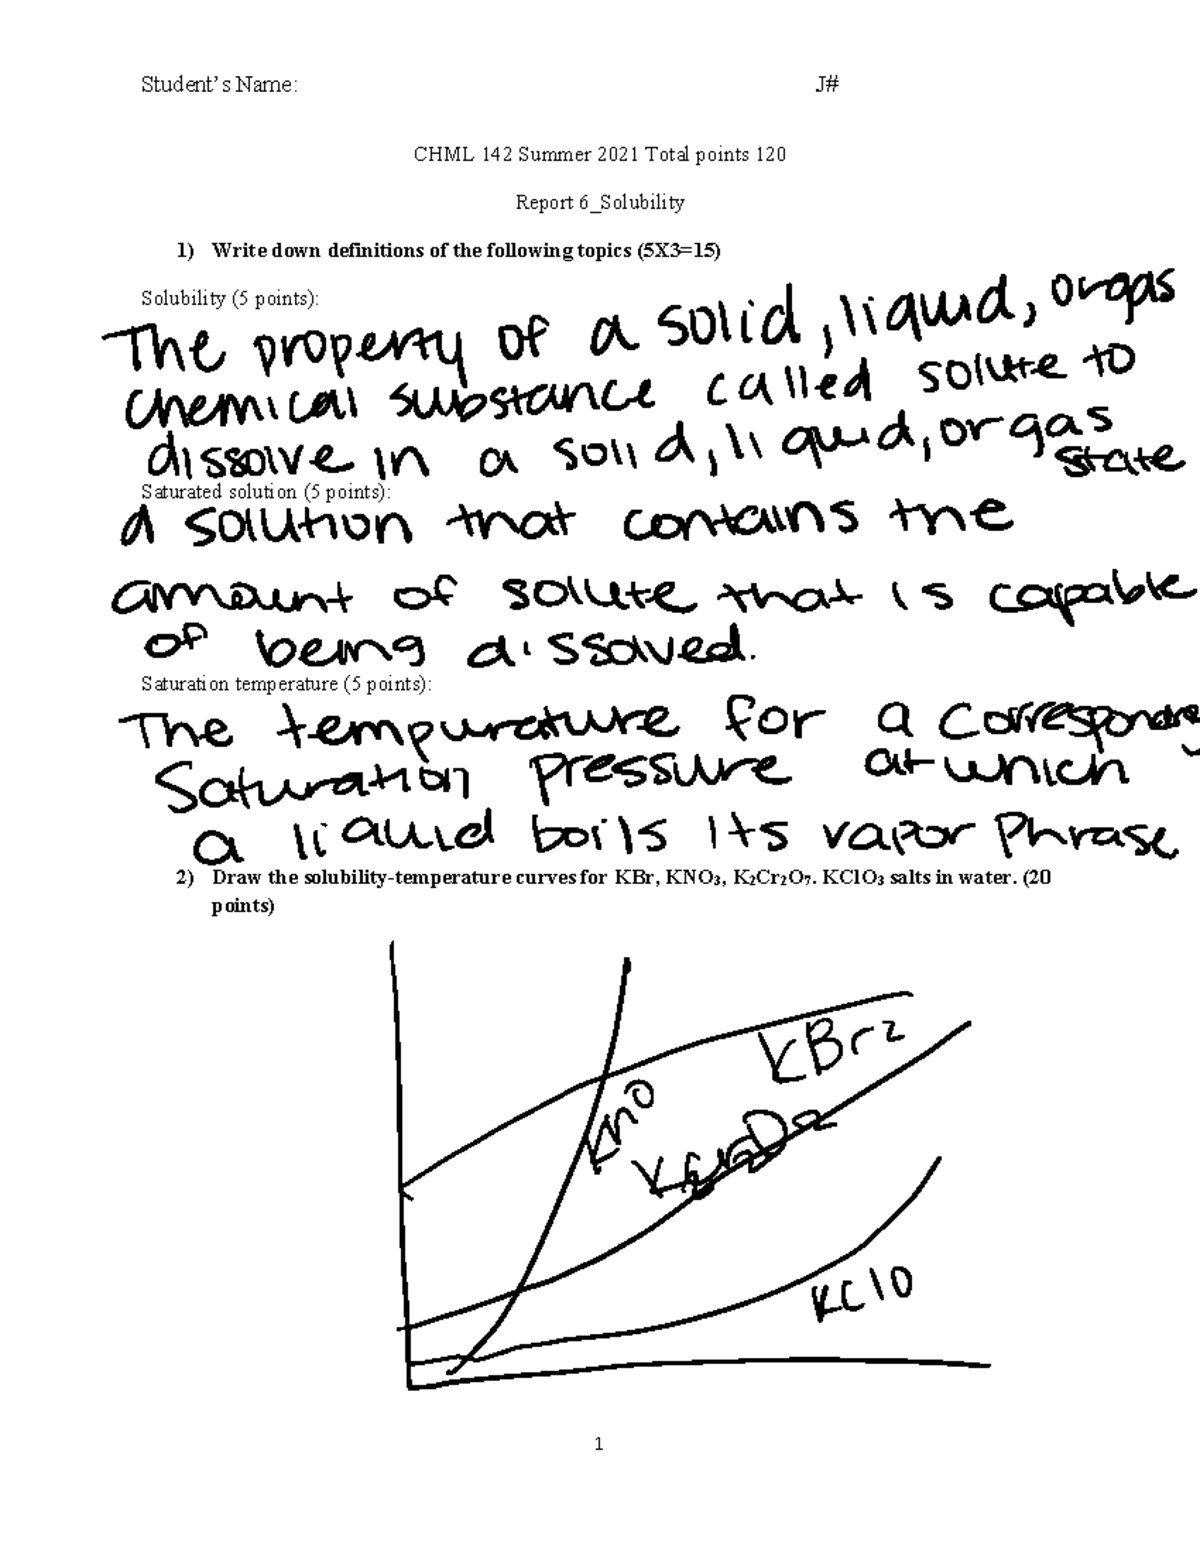 Student's Name: J#
CHML 142 Summer 2021 Total points 120
Report 6_Solubility
1) Write down definitions of the following topics (5X3=15)
Solubility (5 points):
The property of a solid, liquid, or gas
chemical substance called solute to
dissolve in a solid, liquid, or gas
state
Saturated solution (5 points):
a solution that contains the
amount of solute that is capable
of being dissolved.
Saturation temperature (5 points):
The tempurature for a
saturation pressure at which
a liquid boils its vapor Phrase
2) Draw the solubility-temperature curves for KBr, KNO₃, K₂Cr₂O₇. KClO₃ salts in water. (20
points)
KBr2
KNO
KClO
1